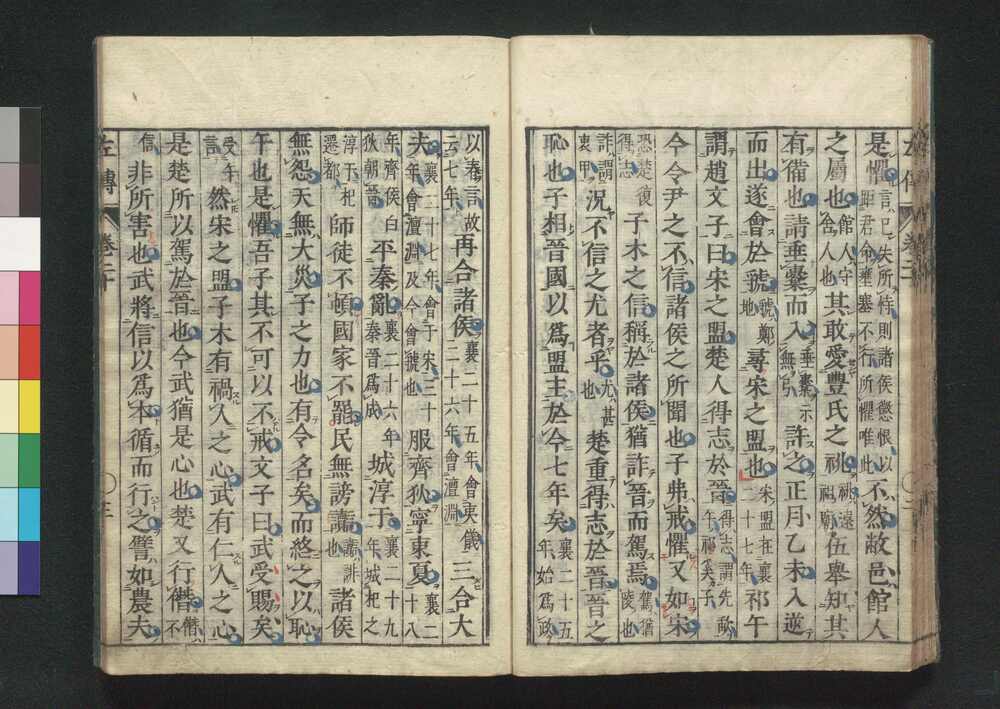 是懼言已失所恃則諸侯懲恨以距君命壅塞不行所懼唯此不然敝邑館人
之屬也館人守舍人也其敢愛豐氏之祧祧遠祖廟伍舉知其
有備也請垂櫜而入垂櫜示無弓許之正月乙未入逆
而出遂會於虢虢鄭地尋宋之盟也宋盟在襄二十七年祁午
謂趙文子曰宋之盟楚人得志於晉得志謂先歃午祁奚子
今令尹之不信諸侯之所聞也子弗戒懼又如宋
恐楚復得志子木之信稱於諸侯猶詐晉而駕焉駕猶陵也
詐謂衷甲況不信之尤者乎尤甚也楚重得志於晉晉之
恥也子相晉國以爲盟主於今七年矣襄二十五年始爲政
以春言故云七年再合諸侯襄二十五年會夷儀二十六年會澶淵三合大
夫襄二十七年會于宋三十年會澶淵及今會虢也服齊狄寧東夏襄二十八
年齊侯白狄朝晉平秦亂襄二十六年秦晉爲成城淳于襄二十九年城杞之
淳于杞遷都師徒不頓國家不罷民無謗讟讟誹也諸侯
無怨天無大災子之力也有令名矣而終之以恥
午也是懼吾子其不可以不戒文子曰武受賜矣
受午言然宋之盟子木有禍人之心武有仁人之心
是楚所以駕於晉也今武猶是心也楚又行僭僭不
信非所害也武將信以爲本循而行之譬如農夫
左傳 卷二十 三